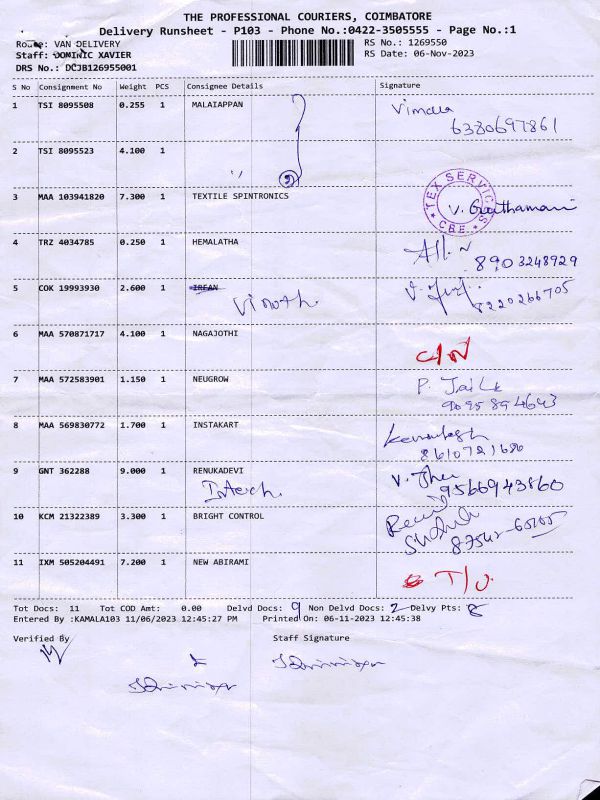 THE PROFESSIONAL COURIERS, COIMBATORE
Delivery Runsheet - P103 - Phone No.:0422-3505555 - Page No.:1
Route: VAN DELIVERY RS No.: 1269550
Staff: DOMINIC XAVIER RS Date: 06-Nov-2023
DRS No.: DCJB126955001
S No Consignment No Weight PCS Consignee Details Signature
1 TSI 8095508 0.255 1 MALAIAPPAN Vimala
6380697861
2 TSI 8095523 4.100 1
3 MAA 103941820 7.300 1 TEXTILE SPINTRONICS
TEX SERVICES CBE.
4 TRZ 4034785 0.250 1 HEMALATHA
8903248929
5 COK 19993930 2.600 1 IRFAN
Vinoth. 8220266705
6 MAA 570871717 4.100 1 NAGAJOTHI
7 MAA 572583901 1.150 1 NEUGROW
9095894643
8 MAA 569830772 1.700 1 INSTAKART
8610721686
9 GNT 362288 9.000 1 RENUKADEVI
9566943860
10 KCM 21322389 3.300 1 BRIGHT CONTROL
11 IXM 505204491 7.200 1 NEW ABIRAMI
Tot Docs: 11 Tot COD Amt: 0.00 Delvd Docs: 9 Non Delvd Docs: 2 Delvy Pts: 8
Entered By :KAMALA103 11/06/2023 12:45:27 PM Printed On: 06-11-2023 12:45:38
Verified By Staff Signature